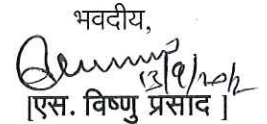 भवदीय,
13/9/2012
[एस. विष्णु प्रसाद ]